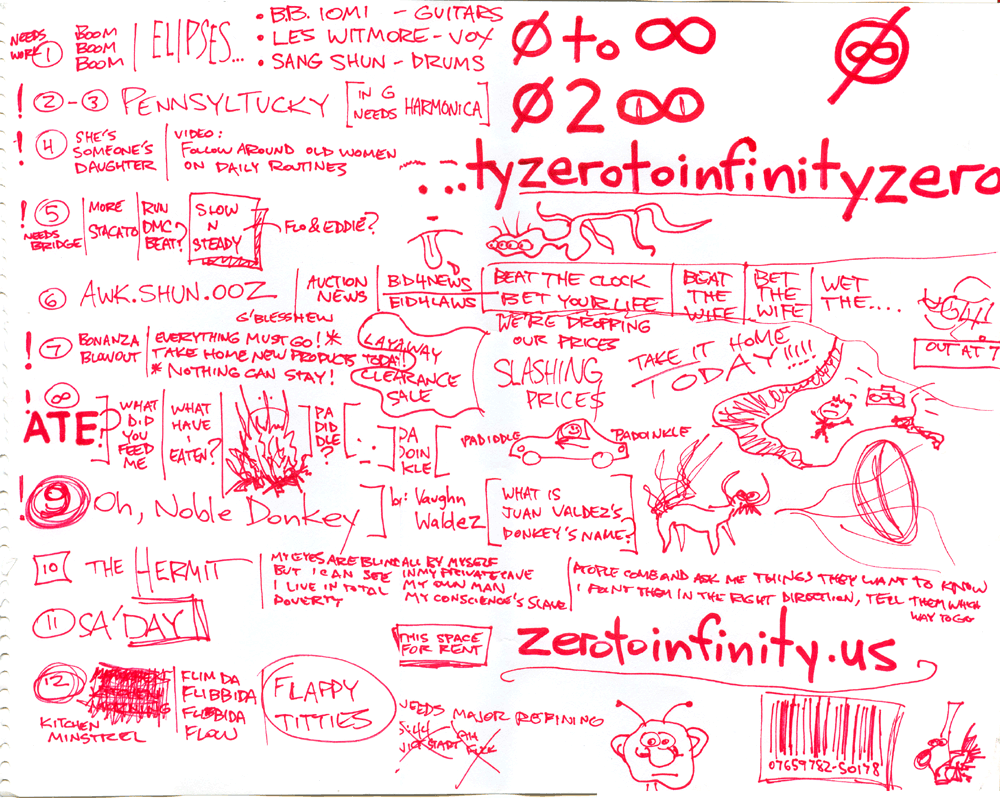 NEEDS WORK
①
BOOM
BOOM
BOOM
ELIPSES...
• B.B. IOMI - GUITARS
• LES WITMORE - VOX
• SANG SHUN - DRUMS
Ø to ∞
Ø 2 ∞
! ②-③ PENNSYLTUCKY
[IN G
NEEDS HARMONICA]
! ④
SHE'S
SOMEONE'S
DAUGHTER
VIDEO:
FOLLOW AROUND OLD WOMEN
ON DAILY ROUTINES
...tyzerotoinfinityzero
! ⑤
NEEDS
BRIDGE
MORE
STACATO
RUN
DMC
BEAT?
SLOW
N
STEADY
FLO & EDDIE?
⑥ AWK.SHUN.OOZ
AUCTION
NEWS
G'BLESSHEW
BID4NEWS
EID4LAWS
BEAT THE CLOCK
BET YOUR LIFE
BEAT
THE
WIFE
BET
THE
WIFE
WET
THE....
OUT AT 7
! ⑦
BONANZA
BLOWOUT
EVERYTHING MUST GO! *
TAKE HOME NEW PRODUCTS TODAY!
* NOTHING CAN STAY!
LAYAWAY
CLEARANCE
SALE
WE'RE DROPPING
OUR PRICES
SLASHING
PRICES
TAKE IT HOME
TODAY!!!!!
! ⑧
ATE?
WHAT
DID
YOU
FEED
ME
WHAT
HAVE
I
EATEN?
PA
DID
DLE
?
DA
DOIN
KLE
PADIDDLE
PADOINKLE
! ⑨ Oh, Noble Donkey
by: Vaughn
Waldez
WHAT IS
JUAN VALDEZ'S
DONKEY'S NAME?
10 THE HERMIT
MY EYES ARE BLIND
BUT I CAN SEE
I LIVE IN TOTAL
POVERTY
ALL BY MYSELF
IN MY PRIVATE CAVE
MY OWN MAN
MY CONSCIENCE'S SLAVE
PEOPLE COME AND ASK ME THINGS THEY WANT TO KNOW
I POINT THEM IN THE RIGHT DIRECTION, TELL THEM WHICH
WAY TO GO
⑪ SA'DAY
THIS SPACE
FOR RENT
zerotoinfinity.us
⑫
KITCHEN
MINSTREL
FLIM DA
FLIBBIDA
FLOBIDA
FLOW
FLAPPY
TITTIES
NEEDS MAJOR REFINING
5:44
07659782-50178